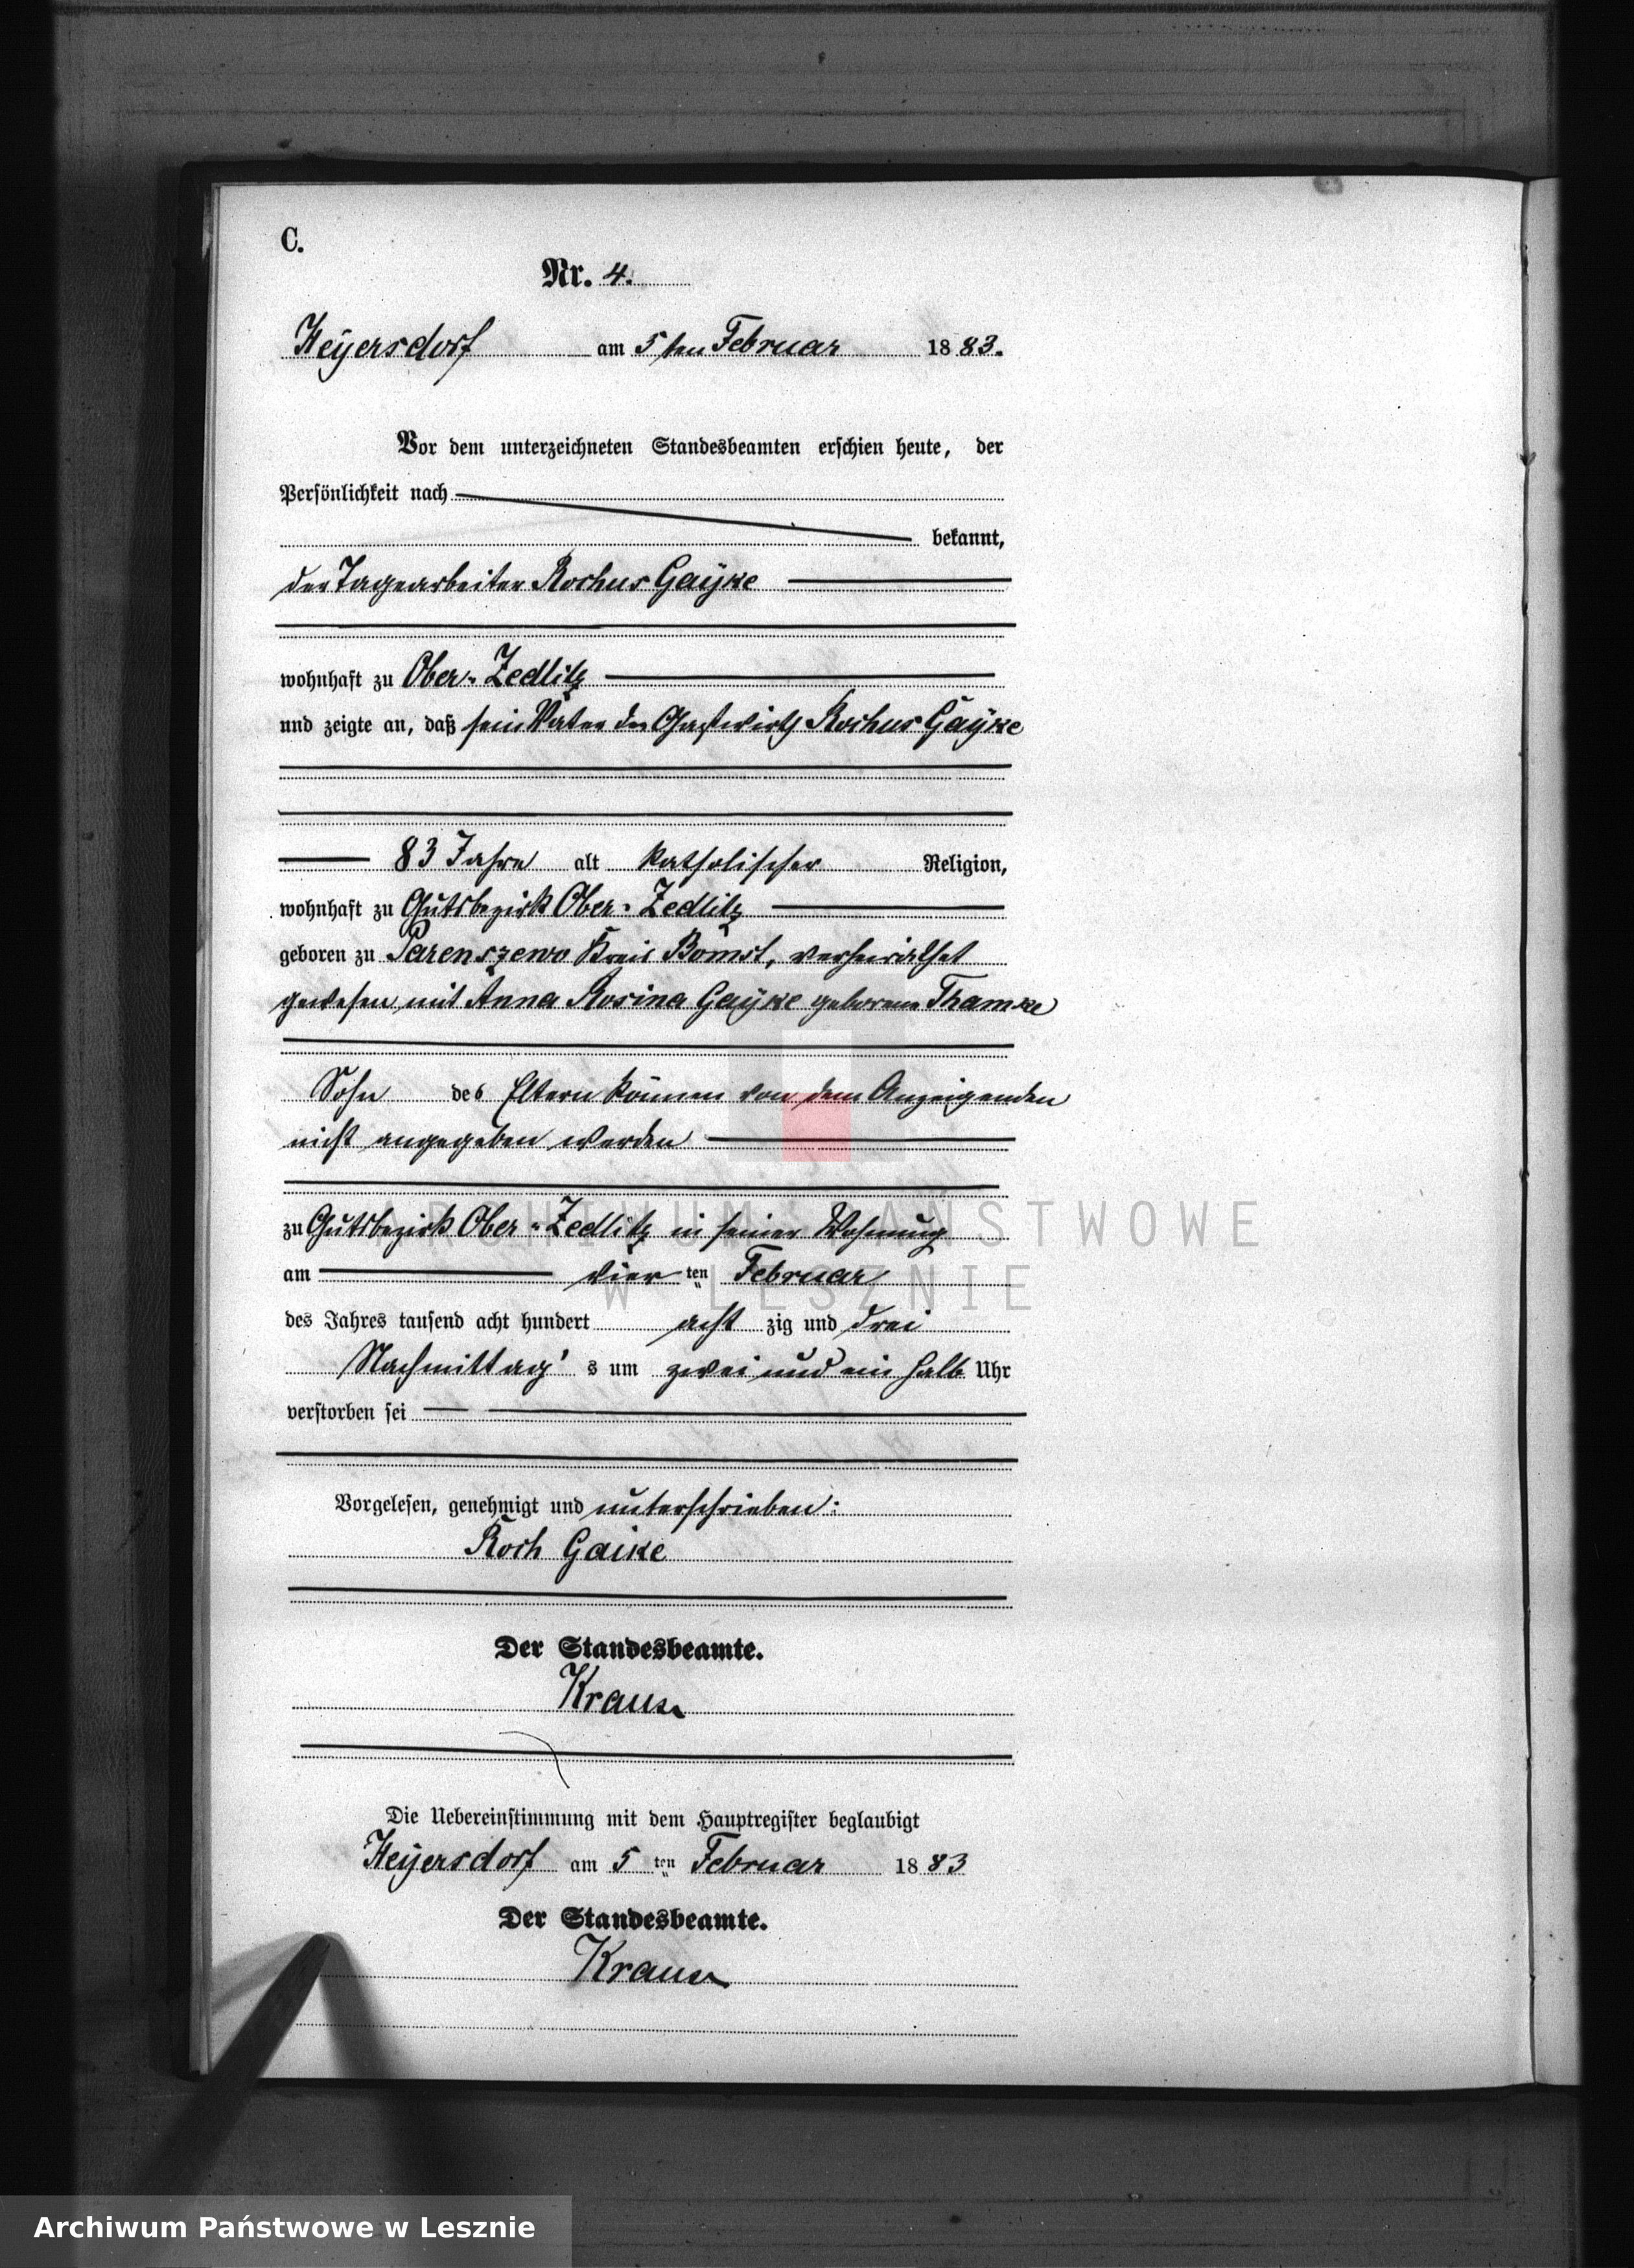 C.
Nr. 4.
Heyersdorf am 5ten Februar 1883.
Vor dem unterzeichneten Standesbeamten erschien heute, der
Persönlichkeit nach
bekannt,
der Tagearbeiter Rochus Gaÿke
wohnhaft zu Ober-Zedlitz
und zeigte an, daß sein Vater der Gastwirth Rochus Gaÿke
83 Jahre alt katholischer Religion,
wohnhaft zu Gutsbezirk Ober-Zedlitz
geboren zu Kreis Bomst, verheirathet
gewesen mit Anna Rosina Gaÿke geborene Thamke
Sohn des Eltern können von dem Anzeigenden
nicht angegeben werden
zu Gutsbezirk Ober-Zedlitz in seiner Wohnung
am vier ten Februar
des Jahres tausend acht hundert acht zig und drei
Nachmittag's um zwei und ein halb Uhr
verstorben sei
Vorgelesen, genehmigt und unterschrieben:
Roch Gaike
Der Standesbeamte.
Krause
Die Uebereinstimmung mit dem Hauptregister beglaubigt
Heyersdorf am 5 ten Februar 1883
Der Standesbeamte.
Krause
ARCHIWUM PAŃSTWOWE
W LESZNIE
Archiwum Państwowe w Lesznie